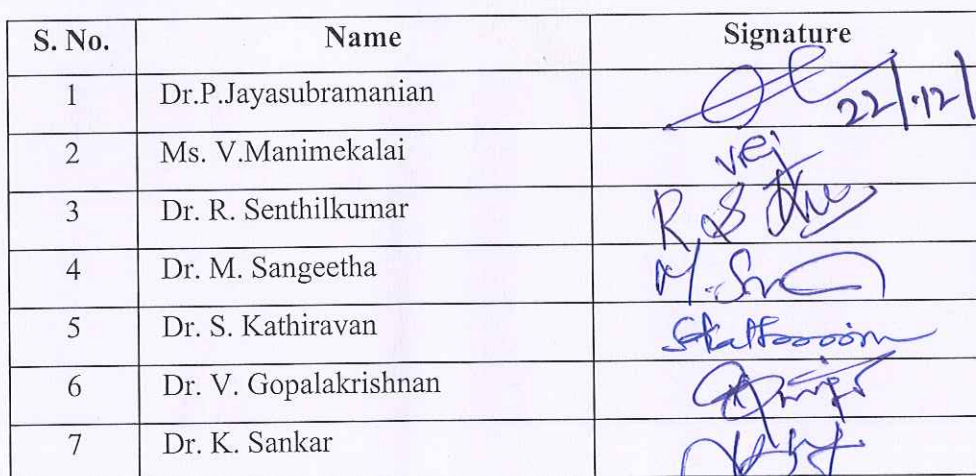 S. No. Name Signature
1 Dr.P.Jayasubramanian 22/.12/
2 Ms. V.Manimekalai
3 Dr. R. Senthilkumar
4 Dr. M. Sangeetha
5 Dr. S. Kathiravan
6 Dr. V. Gopalakrishnan
7 Dr. K. Sankar